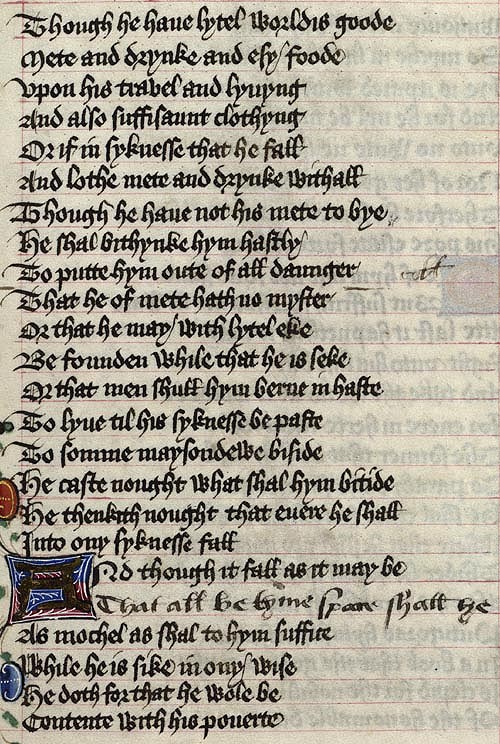 Though he haue lytel worldis goode
Mete and drynke and esy foode
Vpon his travel and lyuyng
And also suffisaunt clothyng
Or if in syknesse that he fall
And lothe mete and drynke withall
Though he haue not his mete to bye
He shal bithynke hym hastly
To putte hym oute of all daunger
That he of mete hath no myster
Or that he may with lytel eke
Be founden while that he is seke
Or that men shull hym berne in haste
To lyue til his syknesse be paste
To somme maysondewe biside
He caste nought what shal hym bitide
He thenkith nought that euere he shall
Into ony syknesse fall
And though it fall as it may be
That all be tyme spare shall he
As mochel as shal to hym suffice
While he is sike in ony wise
He doth for that he wole be
Contente with his pouerte